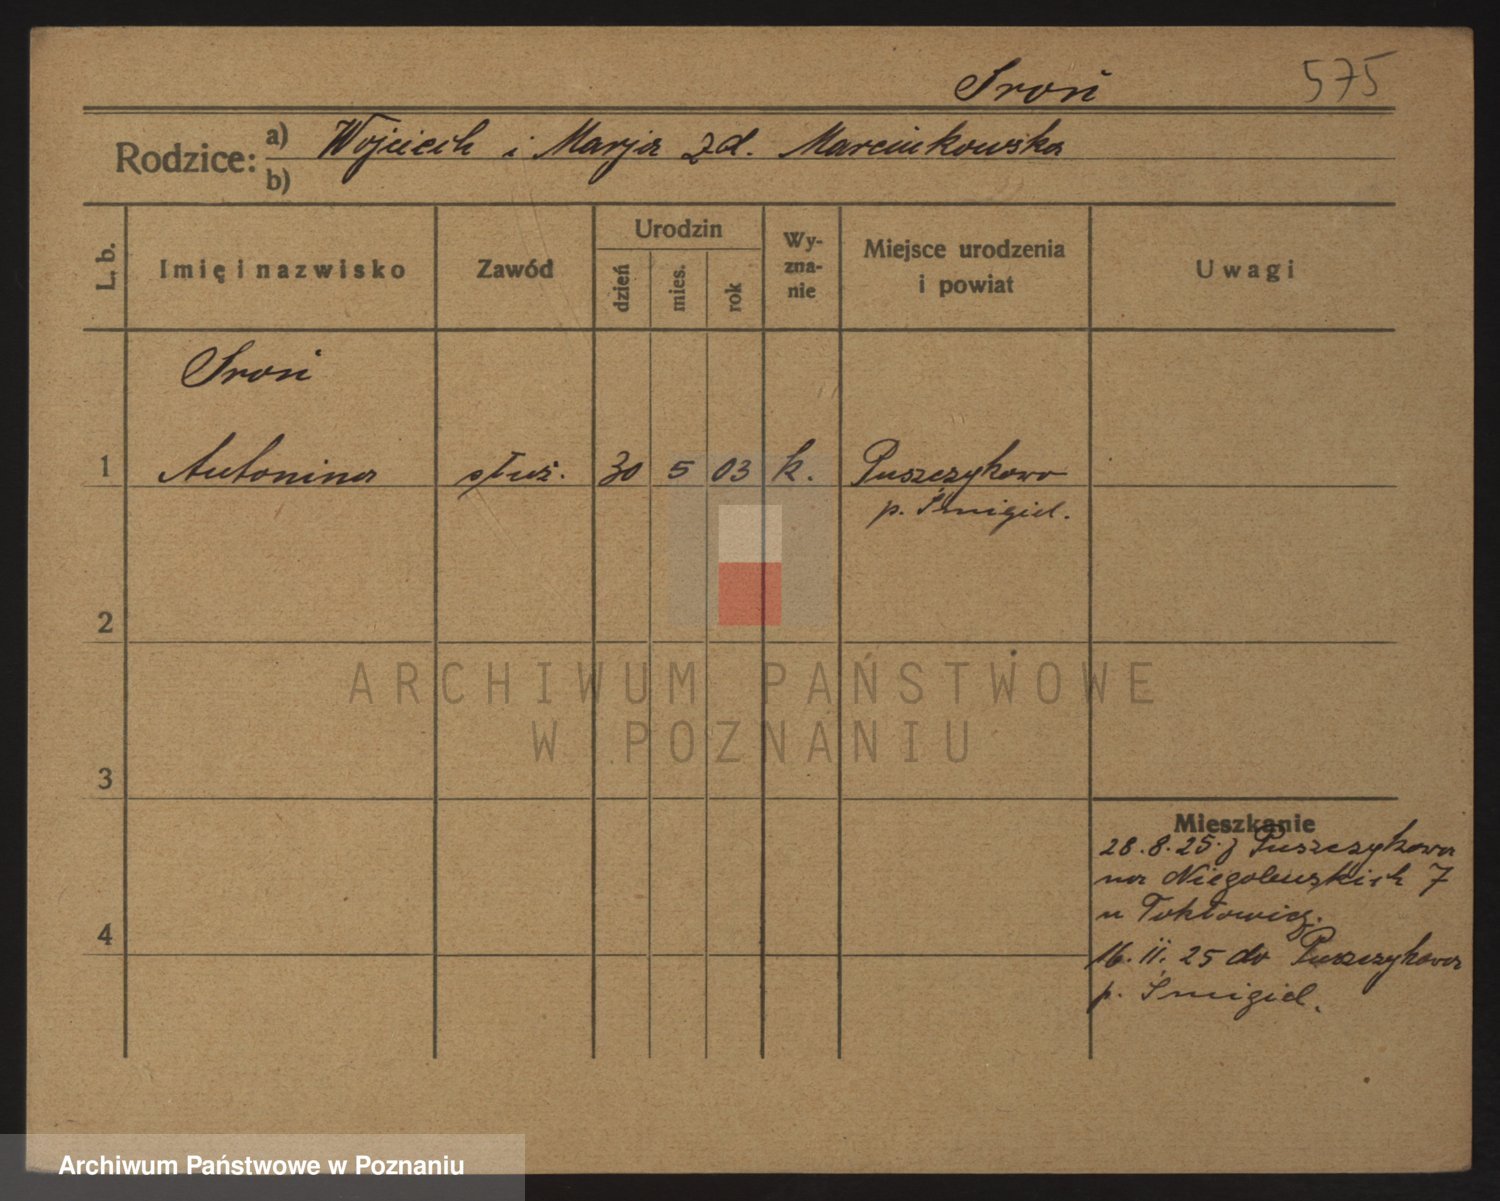 Sroń 575
Rodzice: a) Wojciech i Marja zd. Marcinkowska
b)
L. b. Imię i nazwisko Zawód Urodzin dzień mies. rok Wy-zna-nie Miejsce urodzenia i powiat Uwagi
Sroń
1 Antonina służ. 30 5 03 k. Puszczykowo
p. Śmigiel.
2
ARCHIWUM PAŃSTWOWE
W POZNANIU
3
Mieszkanie
28.8.25. z Puszczykowa
na Niegolewskich 7
u
4
16.11.25 do Puszczykowa
p. Śmigiel.
Archiwum Państwowe w Poznaniu